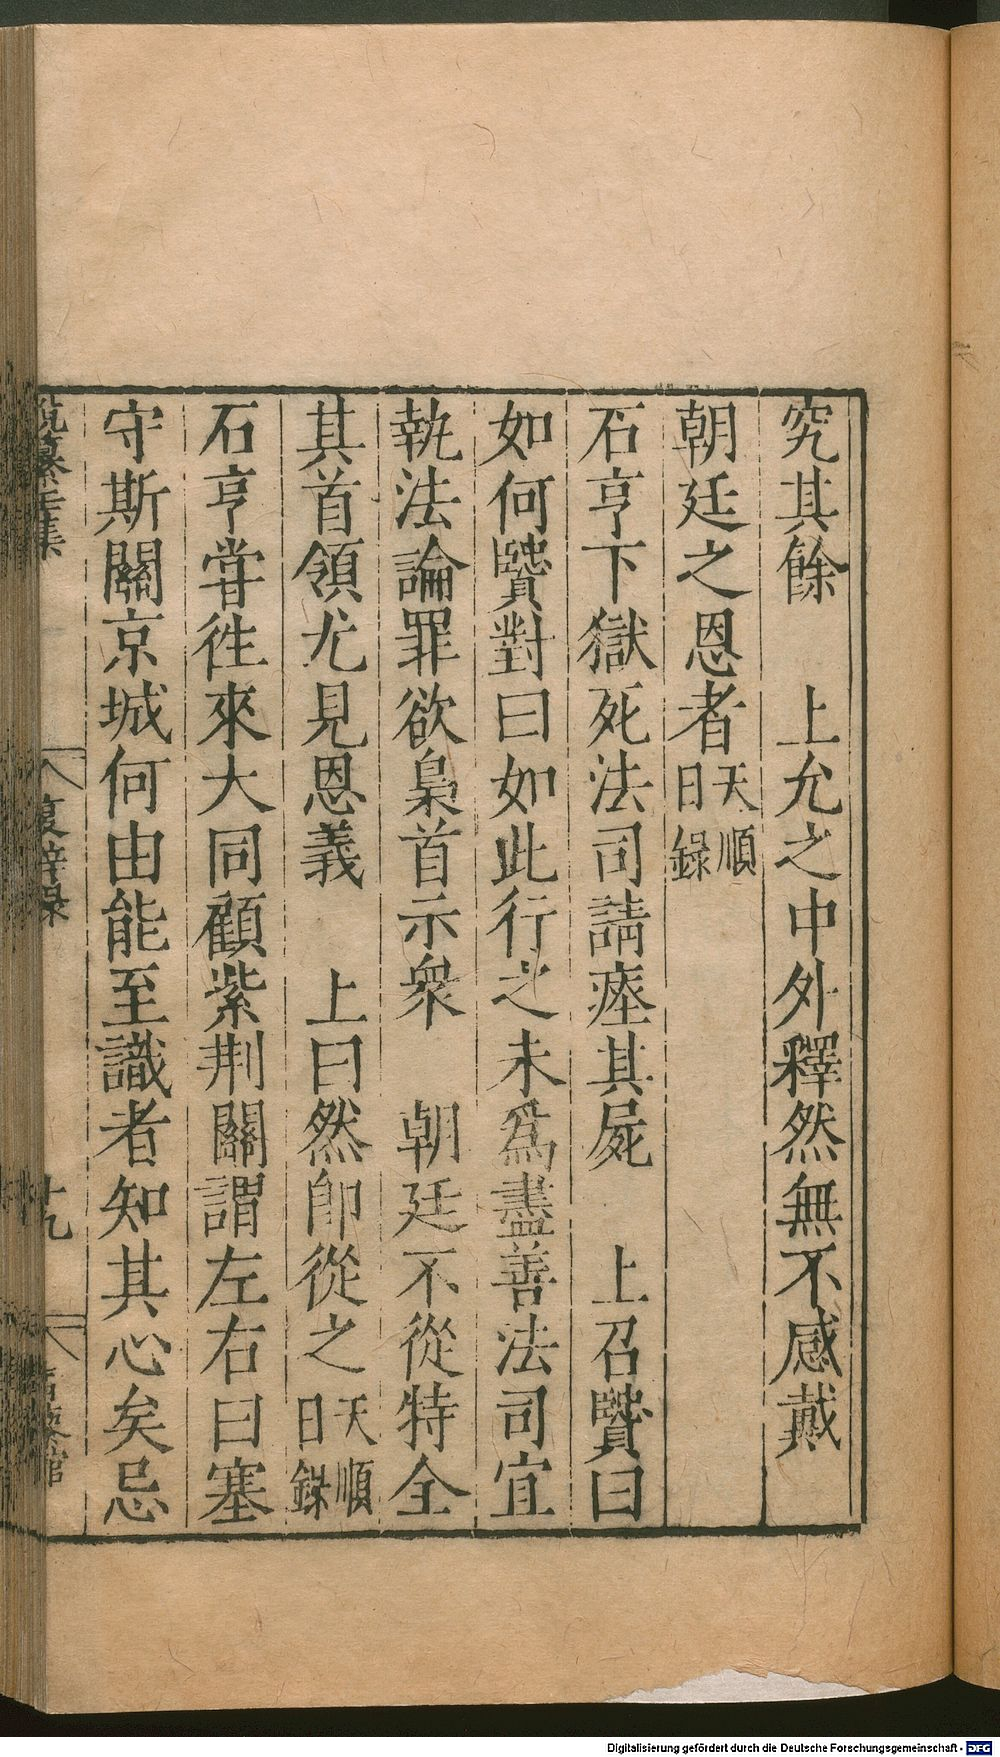 究其餘　上允之中外釋然無不感戴
朝廷之恩者天順日錄
石亨下獄死法司請瘞其屍　上召贒曰
如何贒對曰如此行之未爲盡善法司宜
執法論罪欲梟首示衆　朝廷不從特全
其首領尤見恩義　上曰然即從之天順日錄
石亨甞徃來大同顧紫荆關謂左右曰塞
守斯關京城何由能至識者知其心矣忌
復辟錄
十九
Digitalisierung gefördert durch die Deutsche Forschungsgemeinschaft - DFG